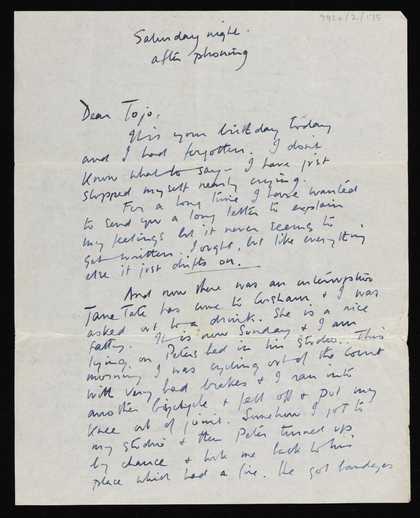 9420/2/175
Saturday night.
after phoning
Dear Tojo,
It is your birthday today
and I had forgotten. I don't
know what to say – I have just
stopped myself nearly crying.
For a long time I have wanted
to send you a long letter to explain
my feelings but it never seems to
get written. I ought, but like everything
else it just drifts on.
And now there was an interruption
Jane Tate has come to Corsham & I was
asked out to a drink. She is a nice
fatty. It is now Sunday & I am
lying on Peters bed in his studio. This
morning I was cycling out of the Court
with very bad brakes & I ran into
another bicycle & fell off & put my
knee out of joint. Somehow I got to
my studio & then Peter turned up
by chance & took me back to his
place which had a fire. He got bandages